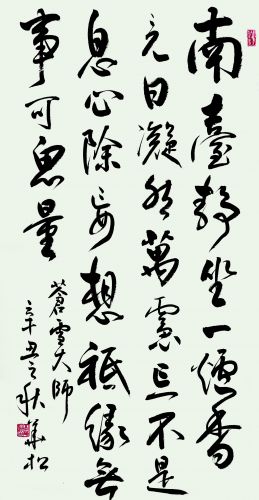 南臺靜坐一爐香
亙日凝然萬慮忘不是
息心除妄想祗緣無
事可思量
蒼雪大師
辛丑之秋華松